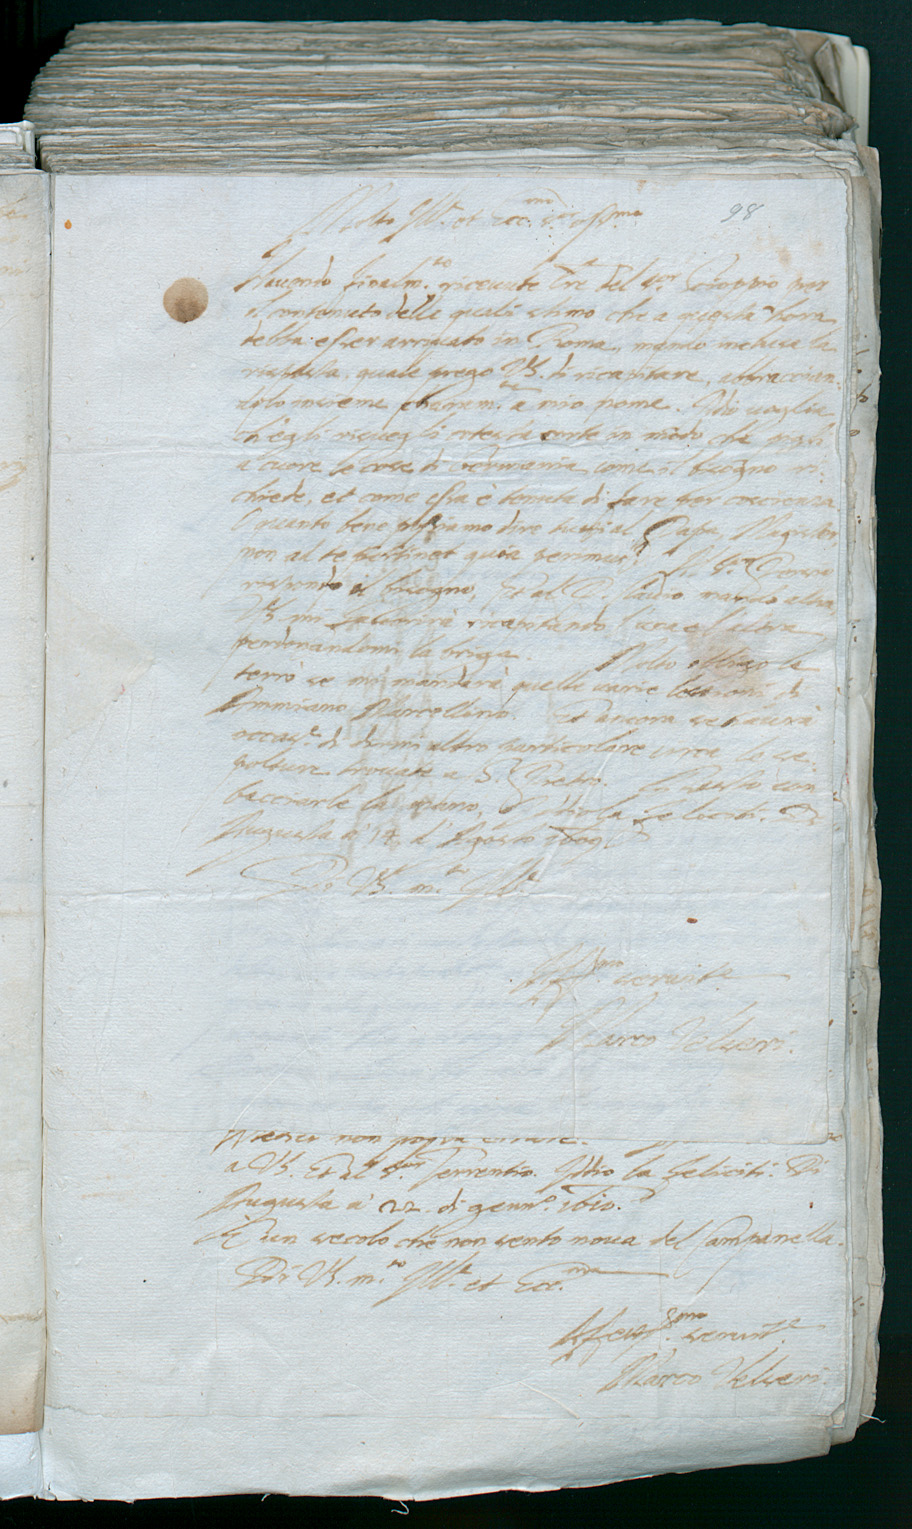 98
Molto Ill.re et ecc.mo s.or oss.mo
Havendo finalm.to ricevute l're del s.or Scioppio per
il contenuto delle quali stimo che a questa hora
debba esser arrivato in Roma, mando inclusa la
risposta, quale prego VS. di ricapitare, abbraccian¬
dolo insieme a mio nome. Idio voglia
ch'egli risvegli cotesta corte in modo che pigli
a cuore le cose di Germania come il bisogno ri¬
chiede, et come essa è tenuta di fare per coscienza
O quanto bene possiamo dire tutti al Papa, Magister,
non ad te pertinet quia perimus? Al s.or
rispondo il bisogno, Et al P. mando altra
VS. mi favorirà ricapitando l'una et l'altra
perdonandomi la briga. Molto obligo le
terrò se mi manderà quelle varie lettioni di
Ammiano Marcellino. Et ancora se haurà
occas.e di darmi altro particolare circa le se¬
polture trovate a S. Pietro. Et resto con
bacciarle la mano, Idio la feliciti. Di
Augusta a' 14 d'Agosto 1609.
Di VS. m.to Ill.e
Aff.mo servit.e
Marco Velseri.
non potrà
a VS. Et al s.or Terrentio. Idio la feliciti. Di
Augusta a' 22. di genn.o 1610.
È un secolo che non sento nova del Campanella.
Di VS. m.to Ill.e et Ecc.ma
Affett.mo servit.e
Marco Velseri